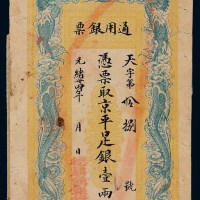 通用銀票
天字第拾捌號
憑票取京平足銀壹兩
光緒年 月 日